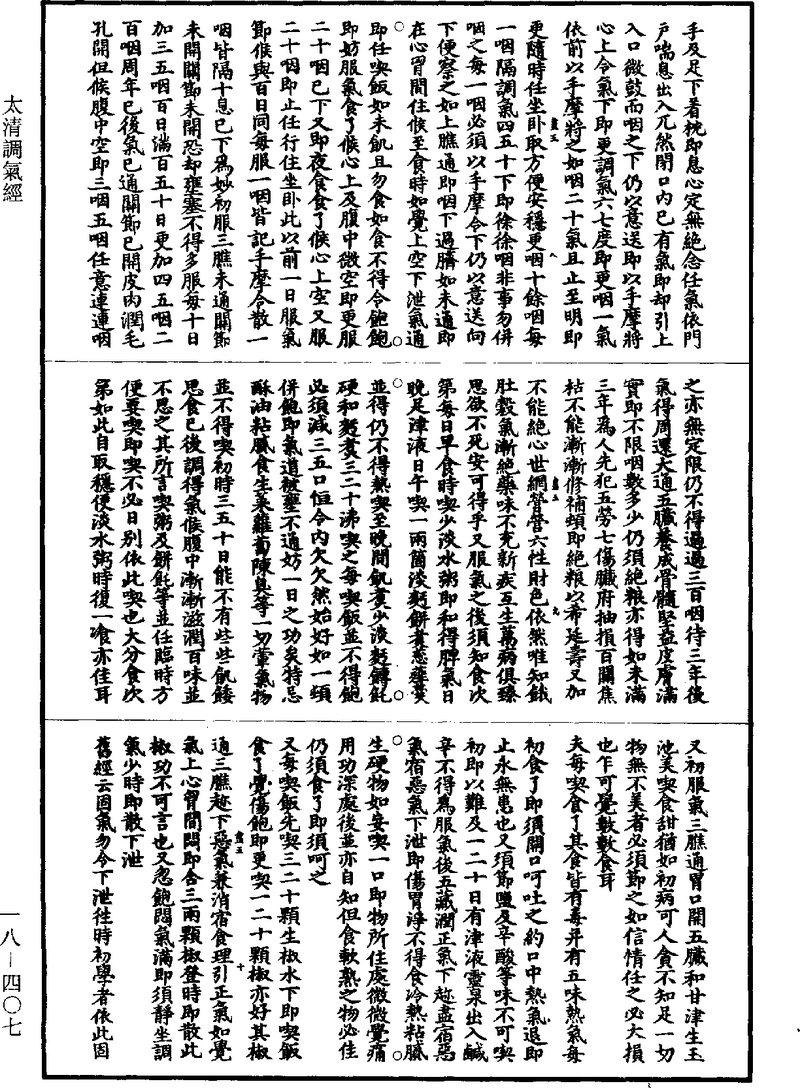 太清調氣經
一八－四〇七
手及足下著枕即息心定無絕念任氣依門
戶喘息出入兀然閉口內已有氣即却引上
入口微鼓而咽之下仍以意送即以手摩將
心上令氣下即更調氣六七度即更咽一氣
依前以手摩將之如咽二十氣且止至明即
更隨時任坐卧取方便安穩更咽十餘咽每
一咽隔調氣四五十下即徐徐咽非事勿併
咽之每一咽必須以手摩令下仍以意送向
下便察之如上膲通即咽下過臍如未通即
在心胷間住候至食時如覺上空下泄氣通
即任喫飯如未飢且勿食如食不得令飽飽
即妨服氣食了候心上及腹中微空即更服
二十咽已下又即夜食食了候心上空又服
二十咽即止任行住坐卧此以前一日服氣
節候與百日同每服一咽皆記手摩令散一
咽皆隔十息已下為妙初服三膲未通關節
未開關節未開恐却壅塞不得多服每十日
加三五咽百日滿百五十日更加四五咽二
百咽周年已後氣已通關節已開皮肉潤毛
孔開但候腹中空即三咽五咽任意連連咽
之亦無定限仍不得過過三百咽待三年後
氣得周還大通五臟養成骨髓堅益皮膚滿
實即不限咽數多少仍須絕粮亦得如未滿
三年為人先犯五勞七傷臟府抽損百關焦
枯不能漸漸修補頓即絕粮以希延壽又加
不能絕心世網營營六性財色依然唯知餓
肚穀氣漸絕藥味不充新疾互生萬病俱臻
思欲不死安可得乎又服氣之後須知食次
第每日早食時喫少淡水粥即和得脾氣日
晚足津液日午喫一兩箇淡麪餅煮葱䪥羹
並得仍不得熱喫至晚間飢煮少淡麪餺飥
硬和麪煮三二十沸喫之每喫飯並不得飽
必須減三五口恒令內欠欠然始好如一頓
併飽即氣道被壅不通妨一日之功矣特忌
酥油粘膩食生菜蘿蔔陳臭等一切葷氣物
並不得喫初時三五十日能不有些些飢餧
思食已後調得氣候腹中漸漸滋潤百味並
不思之其所言喫粥及餅飥等並任臨時方
便要喫即喫不必日別依此喫也大分食次
第如此自取穩便淡水粥時復一飡亦佳耳
又初服氣三膲通胃口開五臟和甘津生玉
池美喫食甜猶如初病可人貪不知足一切
物無不美者必須節之如信情任之必大損
也乍可覺數數食耳
夫每喫食了其食皆有毒幷有五味熱氣每
初食了即須開口呵吐之約口中熱氣退即
止永無患也又須節鹽及辛酸等味不可喫
初即以難及一二十日有津液靈泉出入鹹
辛不得為服氣後五藏潤正氣下趂盡宿惡
氣宿惡氣下泄即傷胃淨不得食冷熱粘膩
生硬物如妄喫一口即物所住處微微覺痛
用功深處後並亦自知但食軟熟之物必佳
仍須食了即須呵之
又每喫飯先喫三二十顆生椒水下即喫飯
食了覺傷飽即更喫一二十顆椒亦好其椒
通三膲趂下惡氣兼消宿食理引正氣如覺
氣上心胷間悶即含三兩顆椒登時即散此
椒功不可言也又忽飽悶氣滿即須靜坐調
氣少時即散下泄
舊經云固氣勿令下泄往時初學者依此固